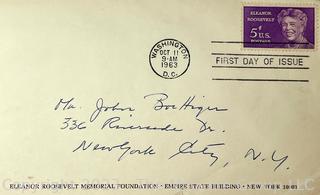 ELEANOR
ROOSEVELT
5¢ U.S.
POSTAGE
WASHINGTON
OCT 11
9-AM
1963
D.C.
FIRST DAY OF ISSUE
Mr. John Boettiger
336 Riverside Dr.
New York City, N.Y.
ELEANOR ROOSEVELT MEMORIAL FOUNDATION · EMPIRE STATE BUILDING · NEW YORK